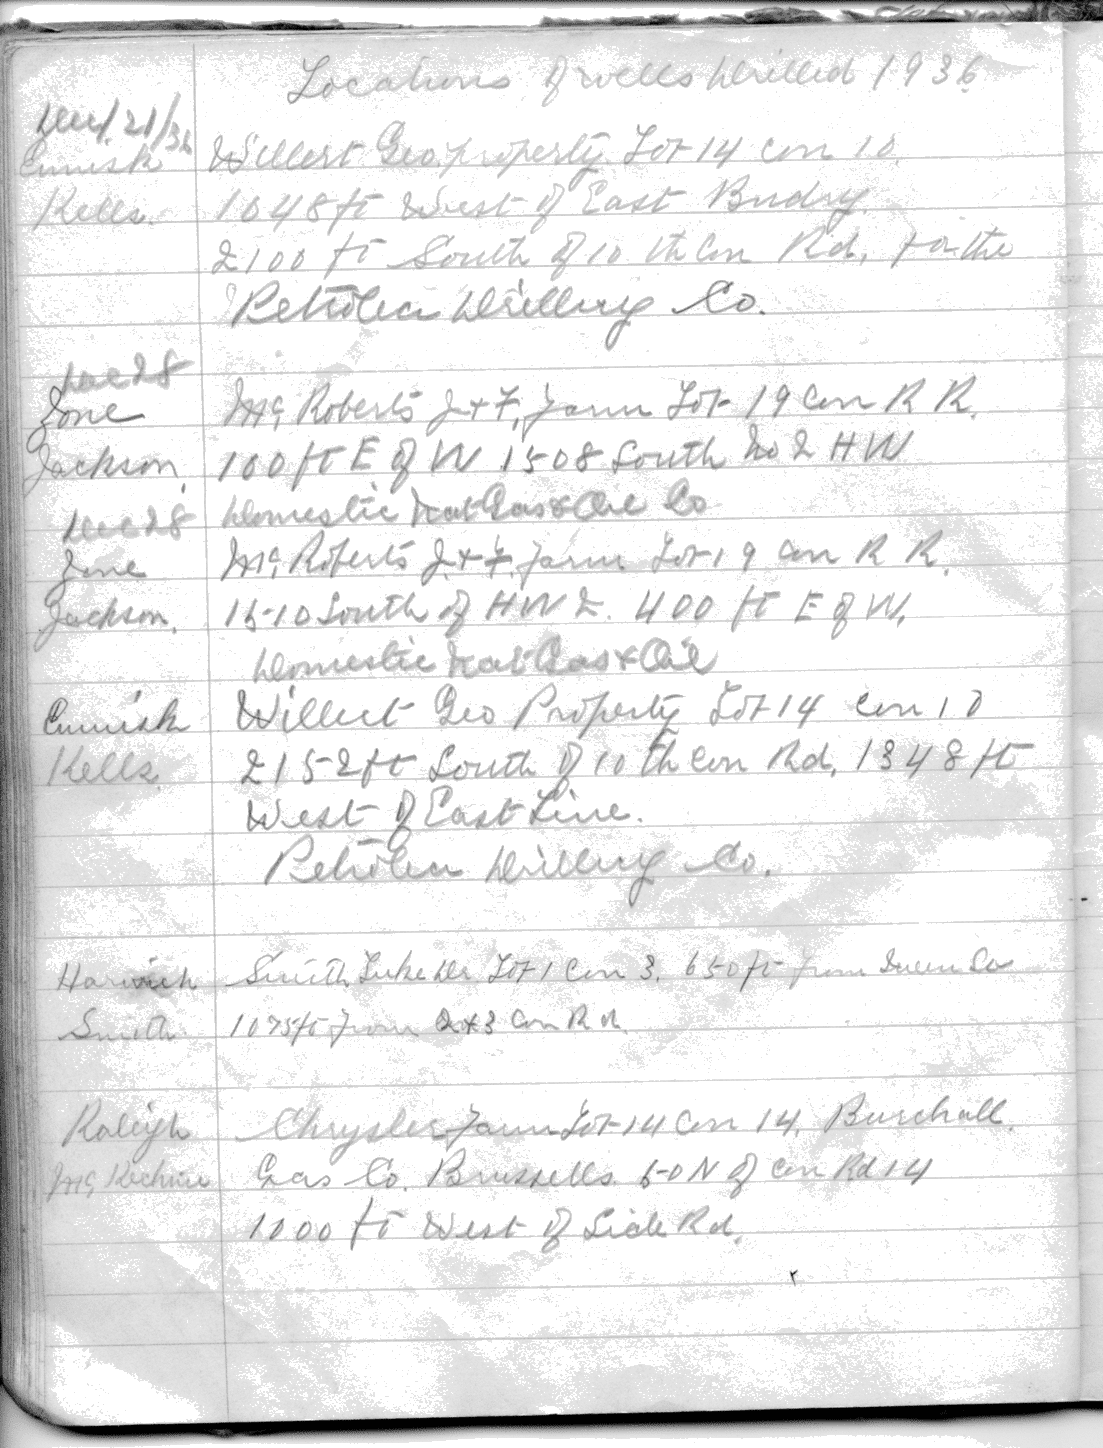 Locations of wells Drilled 1936
Dec/21/36
Ennisk Willert Geo. property Lot 14 con 10.
Kells. 1048 ft West of East Bndry.
2100 ft South of 10 th Con Rd, for the
Petrolea Drilling Co.
Dec 28
Zone Mc Roberts J + F, farm Lot 19 Con R R.
Jackson, 100 ft E of W 1508 South No 2 HW
Domestic Nat Gas & Oil Co
Dec 28
Zone Mc Roberts J. + F. farm Lot 19 Con R R.
Jackson, 1510 South of HW 2. 400 ft E of W.
Domestic Nat Gas & Oil
Ennisk Willert Geo Property Lot 14 Con 10
Kells. 2152 ft South of 10 th Con Rd, 1348 ft
West of East Line.
Petrolea Drilling Co.
Harwich Smith Luke Dr. Lot 1 Con 3. 650 ft from
Smith 1075 ft from 2 & 3 Con Rd.
Raleigh Chrysler farm Lot 14 Con 14, Burchall.
Mc Kechnie Gas Co. Brussells. 50 N of Con Rd 14
1000 ft West of Side Rd.